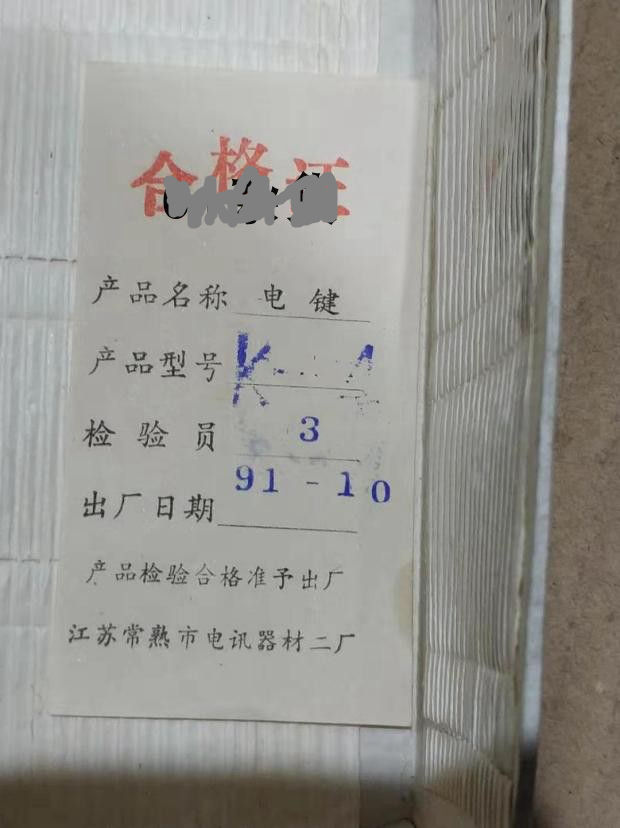 合格证
产品名称 电键
产品型号 K
检验员 3
出厂日期 91-10
产品检验合格准予出厂
江苏常熟市电讯器材二厂